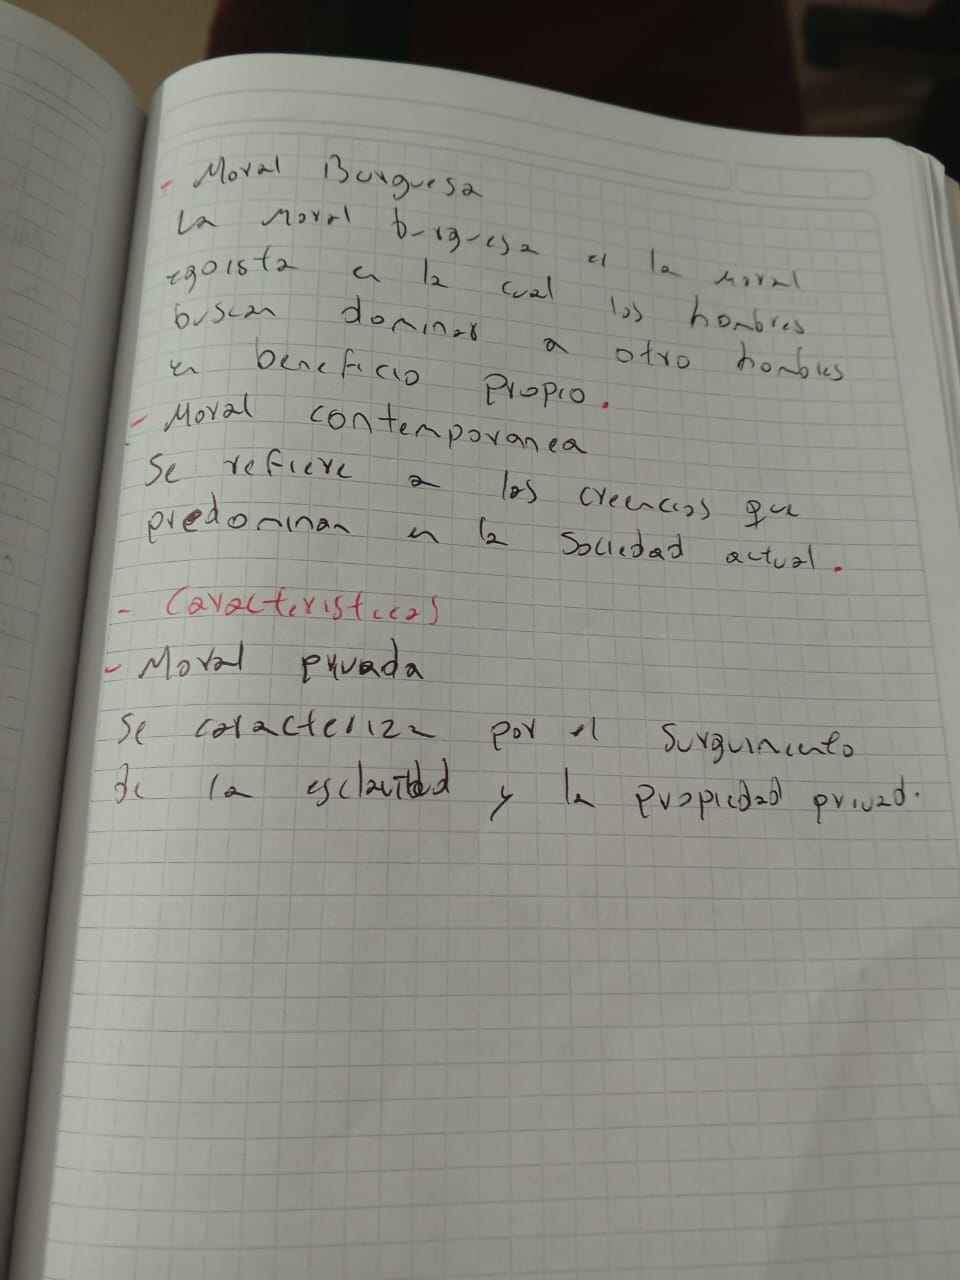 - Moral Burguesa
La moral burguesa es la moral
egoista en la cual los hombres
buscan dominar a otro hombres
en beneficio propio.
- Moral contemporanea
Se refiere a las creencias que
predominan en la sociedad actual.
- Caracteristicas
- Moral privada
Se caracteriza por el surguimiento
de la esclavitud y la propiedad privad.